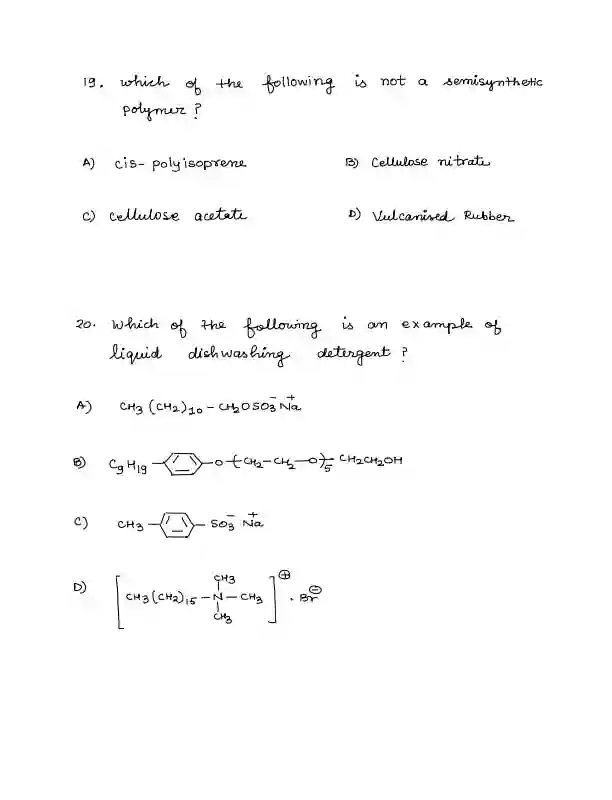 19. which of the following is not a semisynthetic
polymer?
A) cis-polyisoprene B) Cellulose nitrate
C) cellulose acetate D) Vulcanised Rubber
20. Which of the following is an example of
liquid dishwashing detergent?
A) CH3(CH2)10-CH2OSO3⁻Na⁺
B) C9H19-⌬-O-(CH2-CH2-O)5-CH2CH2OH
C) CH3-⌬-SO3⁻Na⁺
D) [CH3(CH2)15-N(CH3)(CH3)-CH3]⊕ . Br⊖